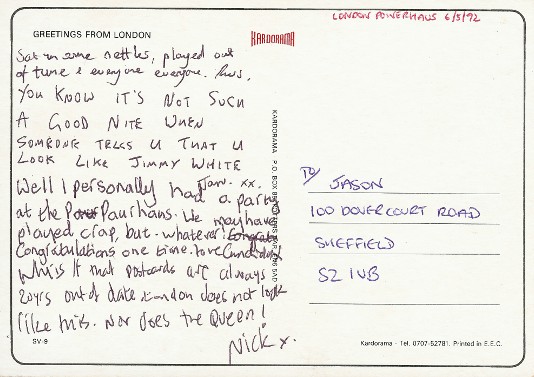 LONDON POWERHAUS 6/5/92
GREETINGS FROM LONDON
KARDORAMA
Sat in some nettles, played out
of tune & everyone everyone.
YOU KNOW IT'S NOT SUCH
A GOOD NITE WHEN
SOMEONE TELLS U THAT U
LOOK LIKE JIMMY WHITE
Jan. xx.
Well I personally had a party
at the Paurhaus. We may have
played crap, but whatever!
Congratulations one time. to ve
Why is it that postcards are always
20yrs out of date London does not look
like this. Nor does the Queen!
Nick x.
TO/ JASON
100 DOVERCOURT ROAD
SHEFFIELD
S2 1UB
KARDORAMA P.O. BOX
SV-9
Kardorama - Tel. 0707-52781. Printed in E.E.C.